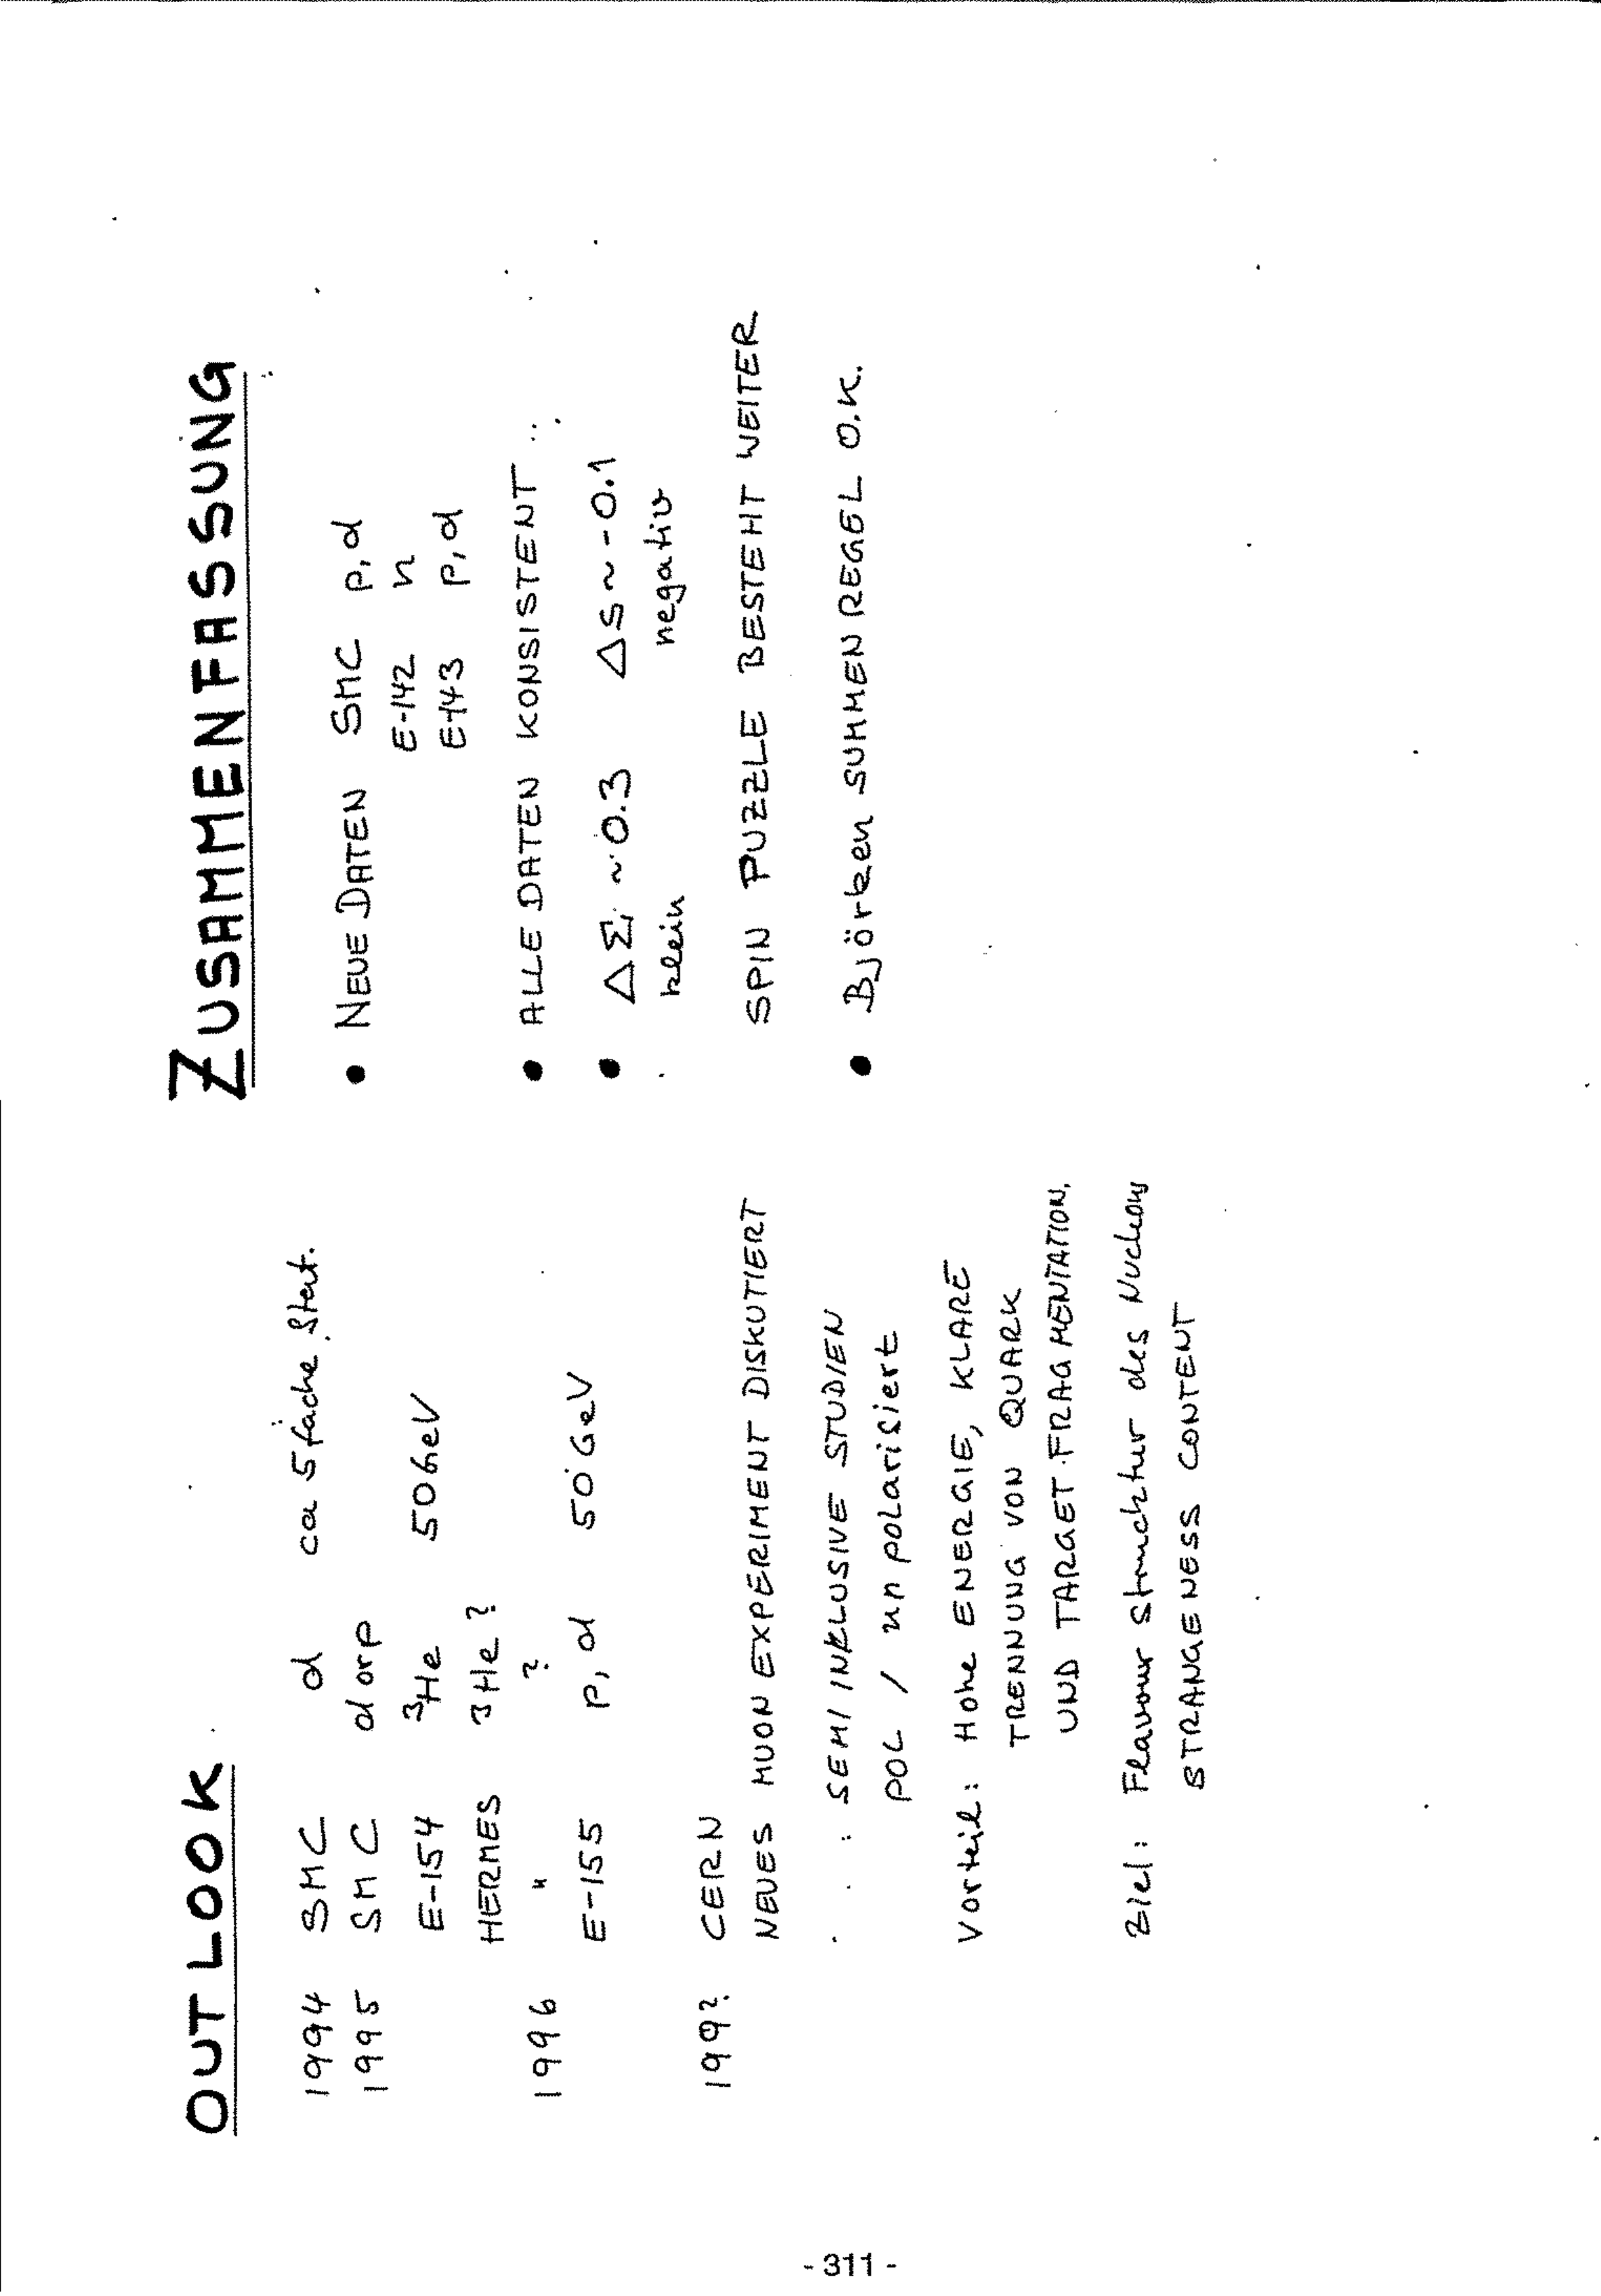 OUTLOOK
1994 SMC d ca 5 fache Stat.
1995 SMC d or p
E-154 ³He 50 GeV
HERMES ³He ?
1996 " ?
E-155 p, d 50 GeV
199? CERN
NEUES MUON EXPERIMENT DISKUTIERT
: SEMI INKLUSIVE STUDIEN
POL / unpolarisiert
Vorteil: Hohe ENERGIE, KLARE
TRENNUNG VON QUARK
UND TARGET FRAGMENTATION.
Ziel: Flavour Struktur des Nucleons
STRANGENESS CONTENT
ZUSAMMENFASSUNG
• NEUE DATEN SMC p, d
E-142 n
E-143 p, d
• ALLE DATEN KONSISTENT
• ΔΣ ~ 0.3 Δs ~ -0.1
klein negativ
SPIN PUZZLE BESTEHT WEITER
• Björken SUMMENREGEL O.K.
- 311 -